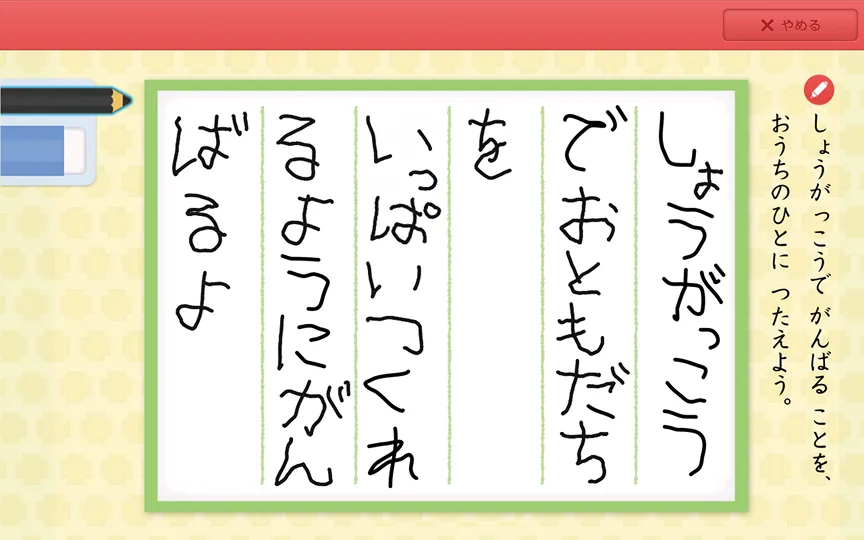 やめる
しょうがっこうで がんばる ことを、
おうちのひとに つたえよう。
しょうがっこう
でおともだち
を
いっぱいつくれ
るようにがん
ばるよ